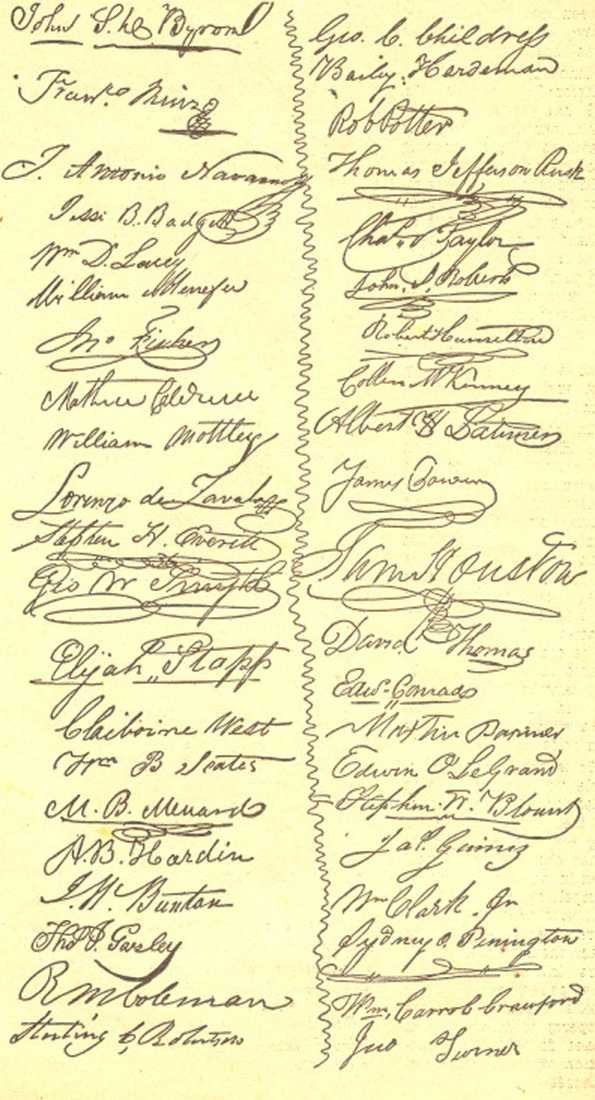 John S. D. Byrom
Franco. Ruiz
J. Antonio Navarro
Jesse B. Badgett
Wm D. Lacey
William Menefee
Jno Fisher
Mathew Caldwell
William Mottley
Lorenzo de Zavala
Stephen H. Everett
Geo W Smyth
Elijah Stapp
Claiborne West
Wm B Scates
M. B. Menard
A. B. Hardin
J. W. Bunton
Thos. J. Gazley
R M Coleman
Sterling C. Robertson
Geo. C. Childress
Baily Hardeman
Rob Potter
Thomas Jefferson Rusk
Chas. S Taylor
John S Roberts
Robert Hamilton
Collin McKinney
Albert H Latimer
James Power
Sam Houston
David Thomas
Edwd Conrad
Martin Parmer
Edwin O LeGrand
Stephen W. Blount
Jas. Gaines
Wm Clark. Jr
Sydney O. Penington
Wm. Carrol Crawford
Jno Turner